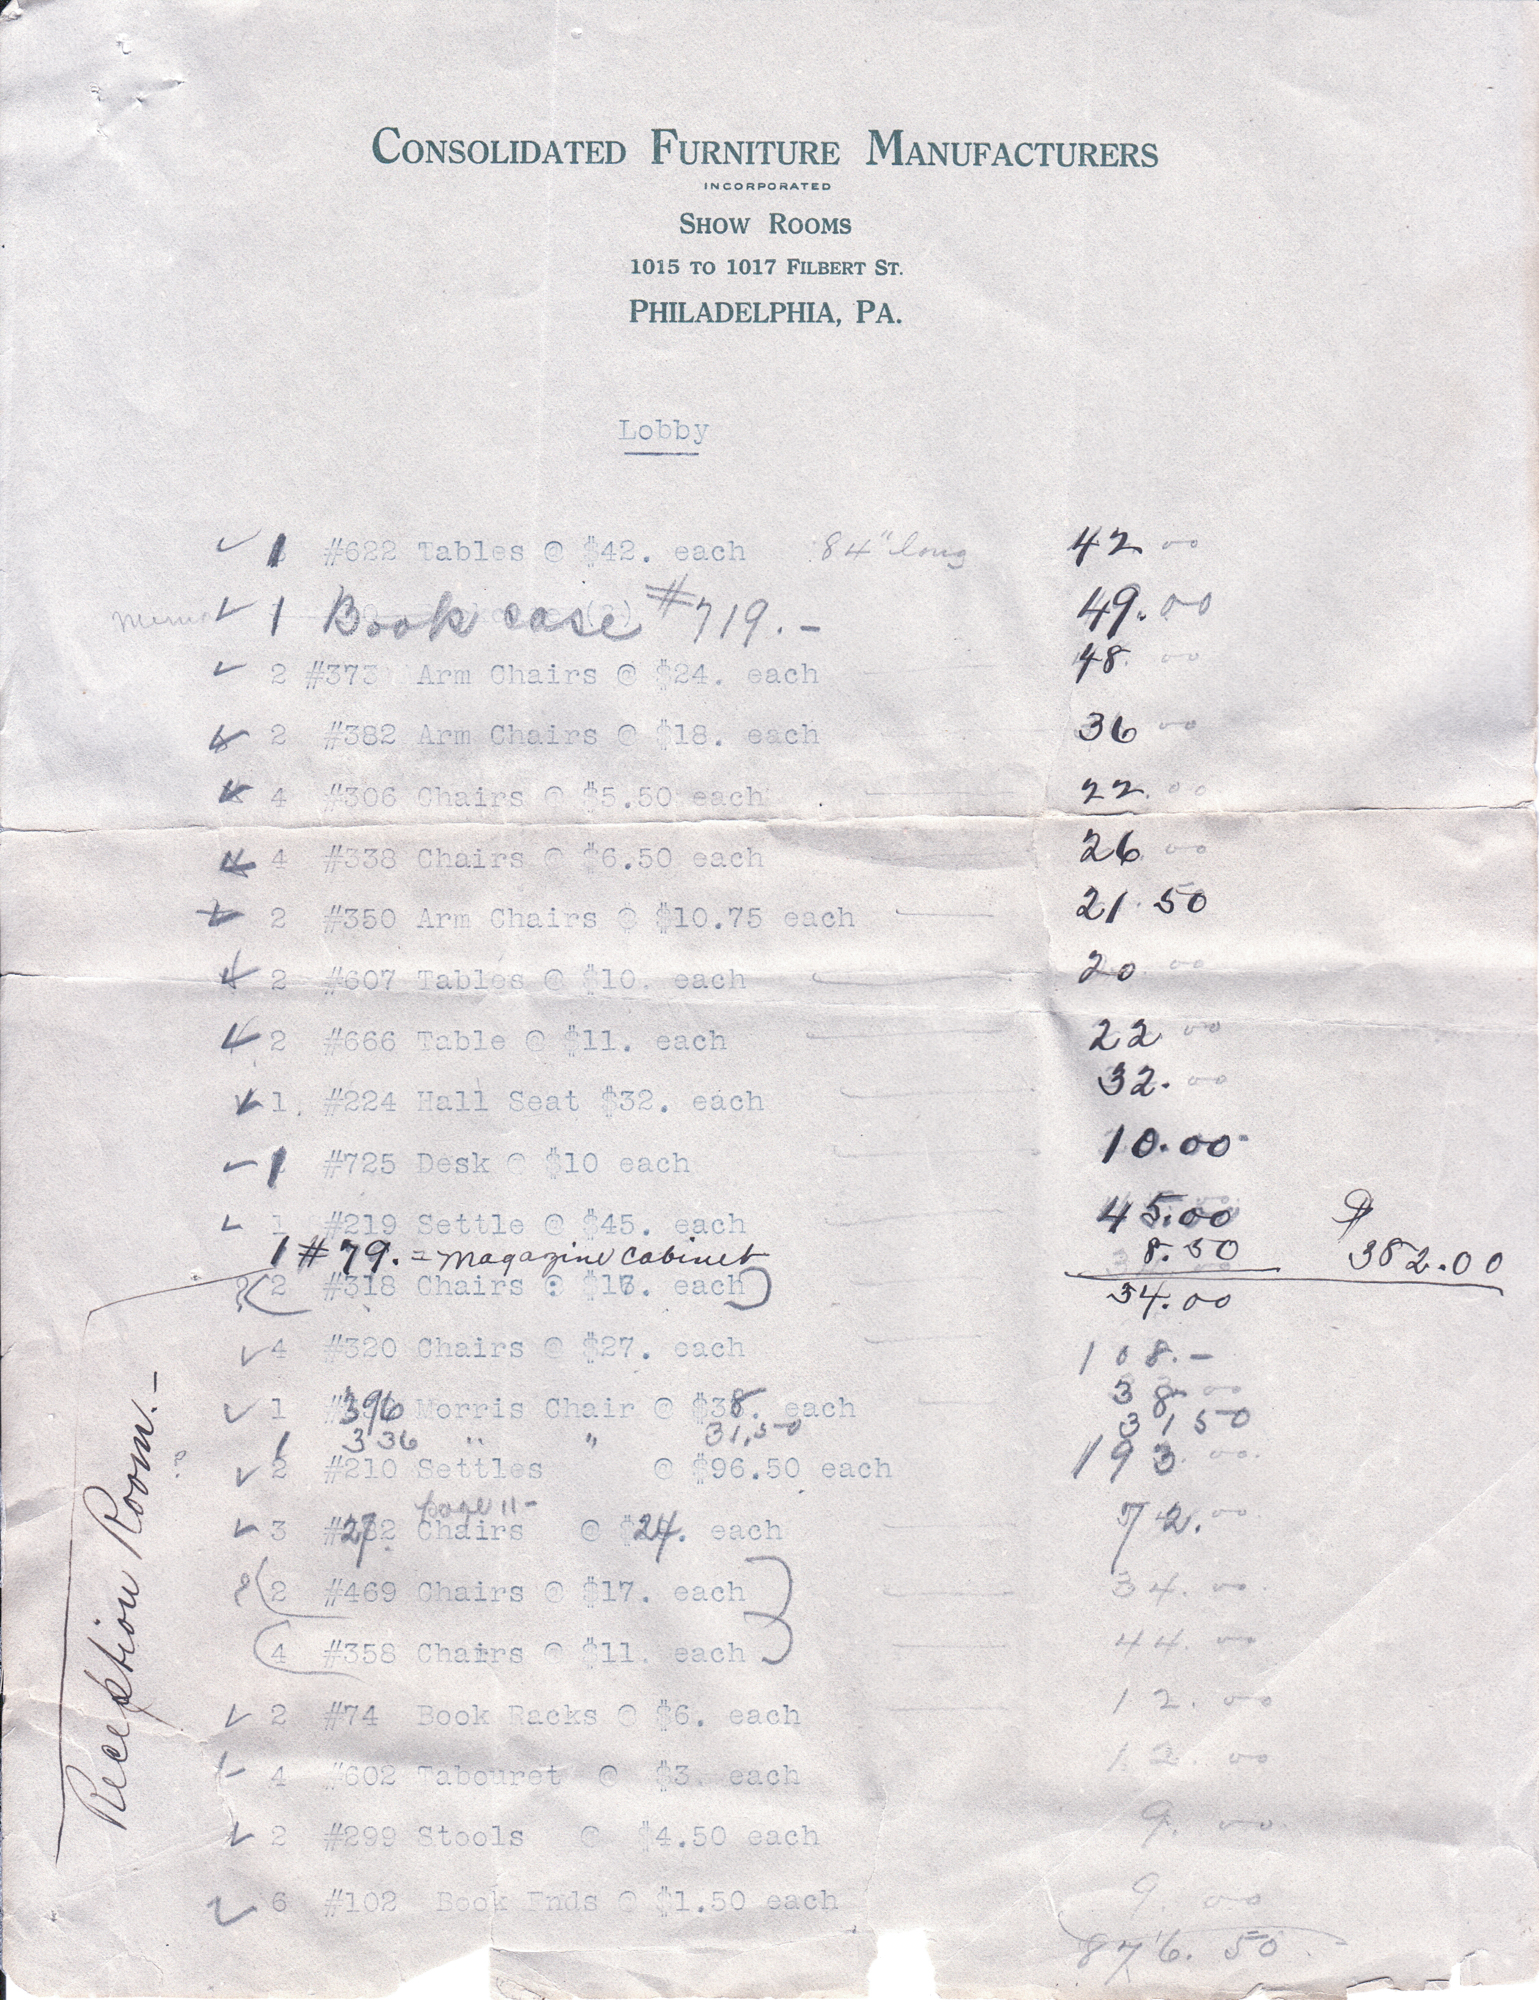 CONSOLIDATED FURNITURE MANUFACTURERS
INCORPORATED
SHOW ROOMS
1015 TO 1017 FILBERT ST.
PHILADELPHIA, PA.
Lobby
1 #622 Tables @ $42. each 84" long 42 00
1 Book case #719.- 49.00
2 #373 Arm Chairs @ $24. each 48. 00
2 #382 Arm Chairs @ $18. each 36 00
4 #306 Chairs @ $5.50 each 22.00
4 #338 Chairs @ $6.50 each 26 00
2 #350 Arm Chairs @ $10.75 each 21.50
2 #607 Tables @ $10. each 20 00
2 #666 Table @ $11. each 22 00
1 #224 Hall Seat $32. each 32. 00
1 #725 Desk @ $10 each 10.00
1 #219 Settle @ $45. each 45.00 $
1 #79. = Magazine Cabinet 8.50 382.00
? (2 #318 Chairs @ $17. each) 34.00
4 #320 Chairs @ $27. each 108.-
1 #396 Morris Chair @ $38. each 38 00
1 336 " " 31,50 31 50
? 2 #210 Settles @ $96.50 each 193. 00
page 11-
3 #272 Chairs @ $24. each 72. 00
? (2 #469 Chairs @ $17. each) 34. 00
(4 #358 Chairs @ $11. each) 44. 00
2 #74 Book Racks @ $6. each 12. 00
4 #602 Tabouret @ $3. each 12. 00
2 #299 Stools @ $4.50 each 9. 00
6 #102 Book Ends @ $1.50 each 9. 00
876. 50
Reception Room.-